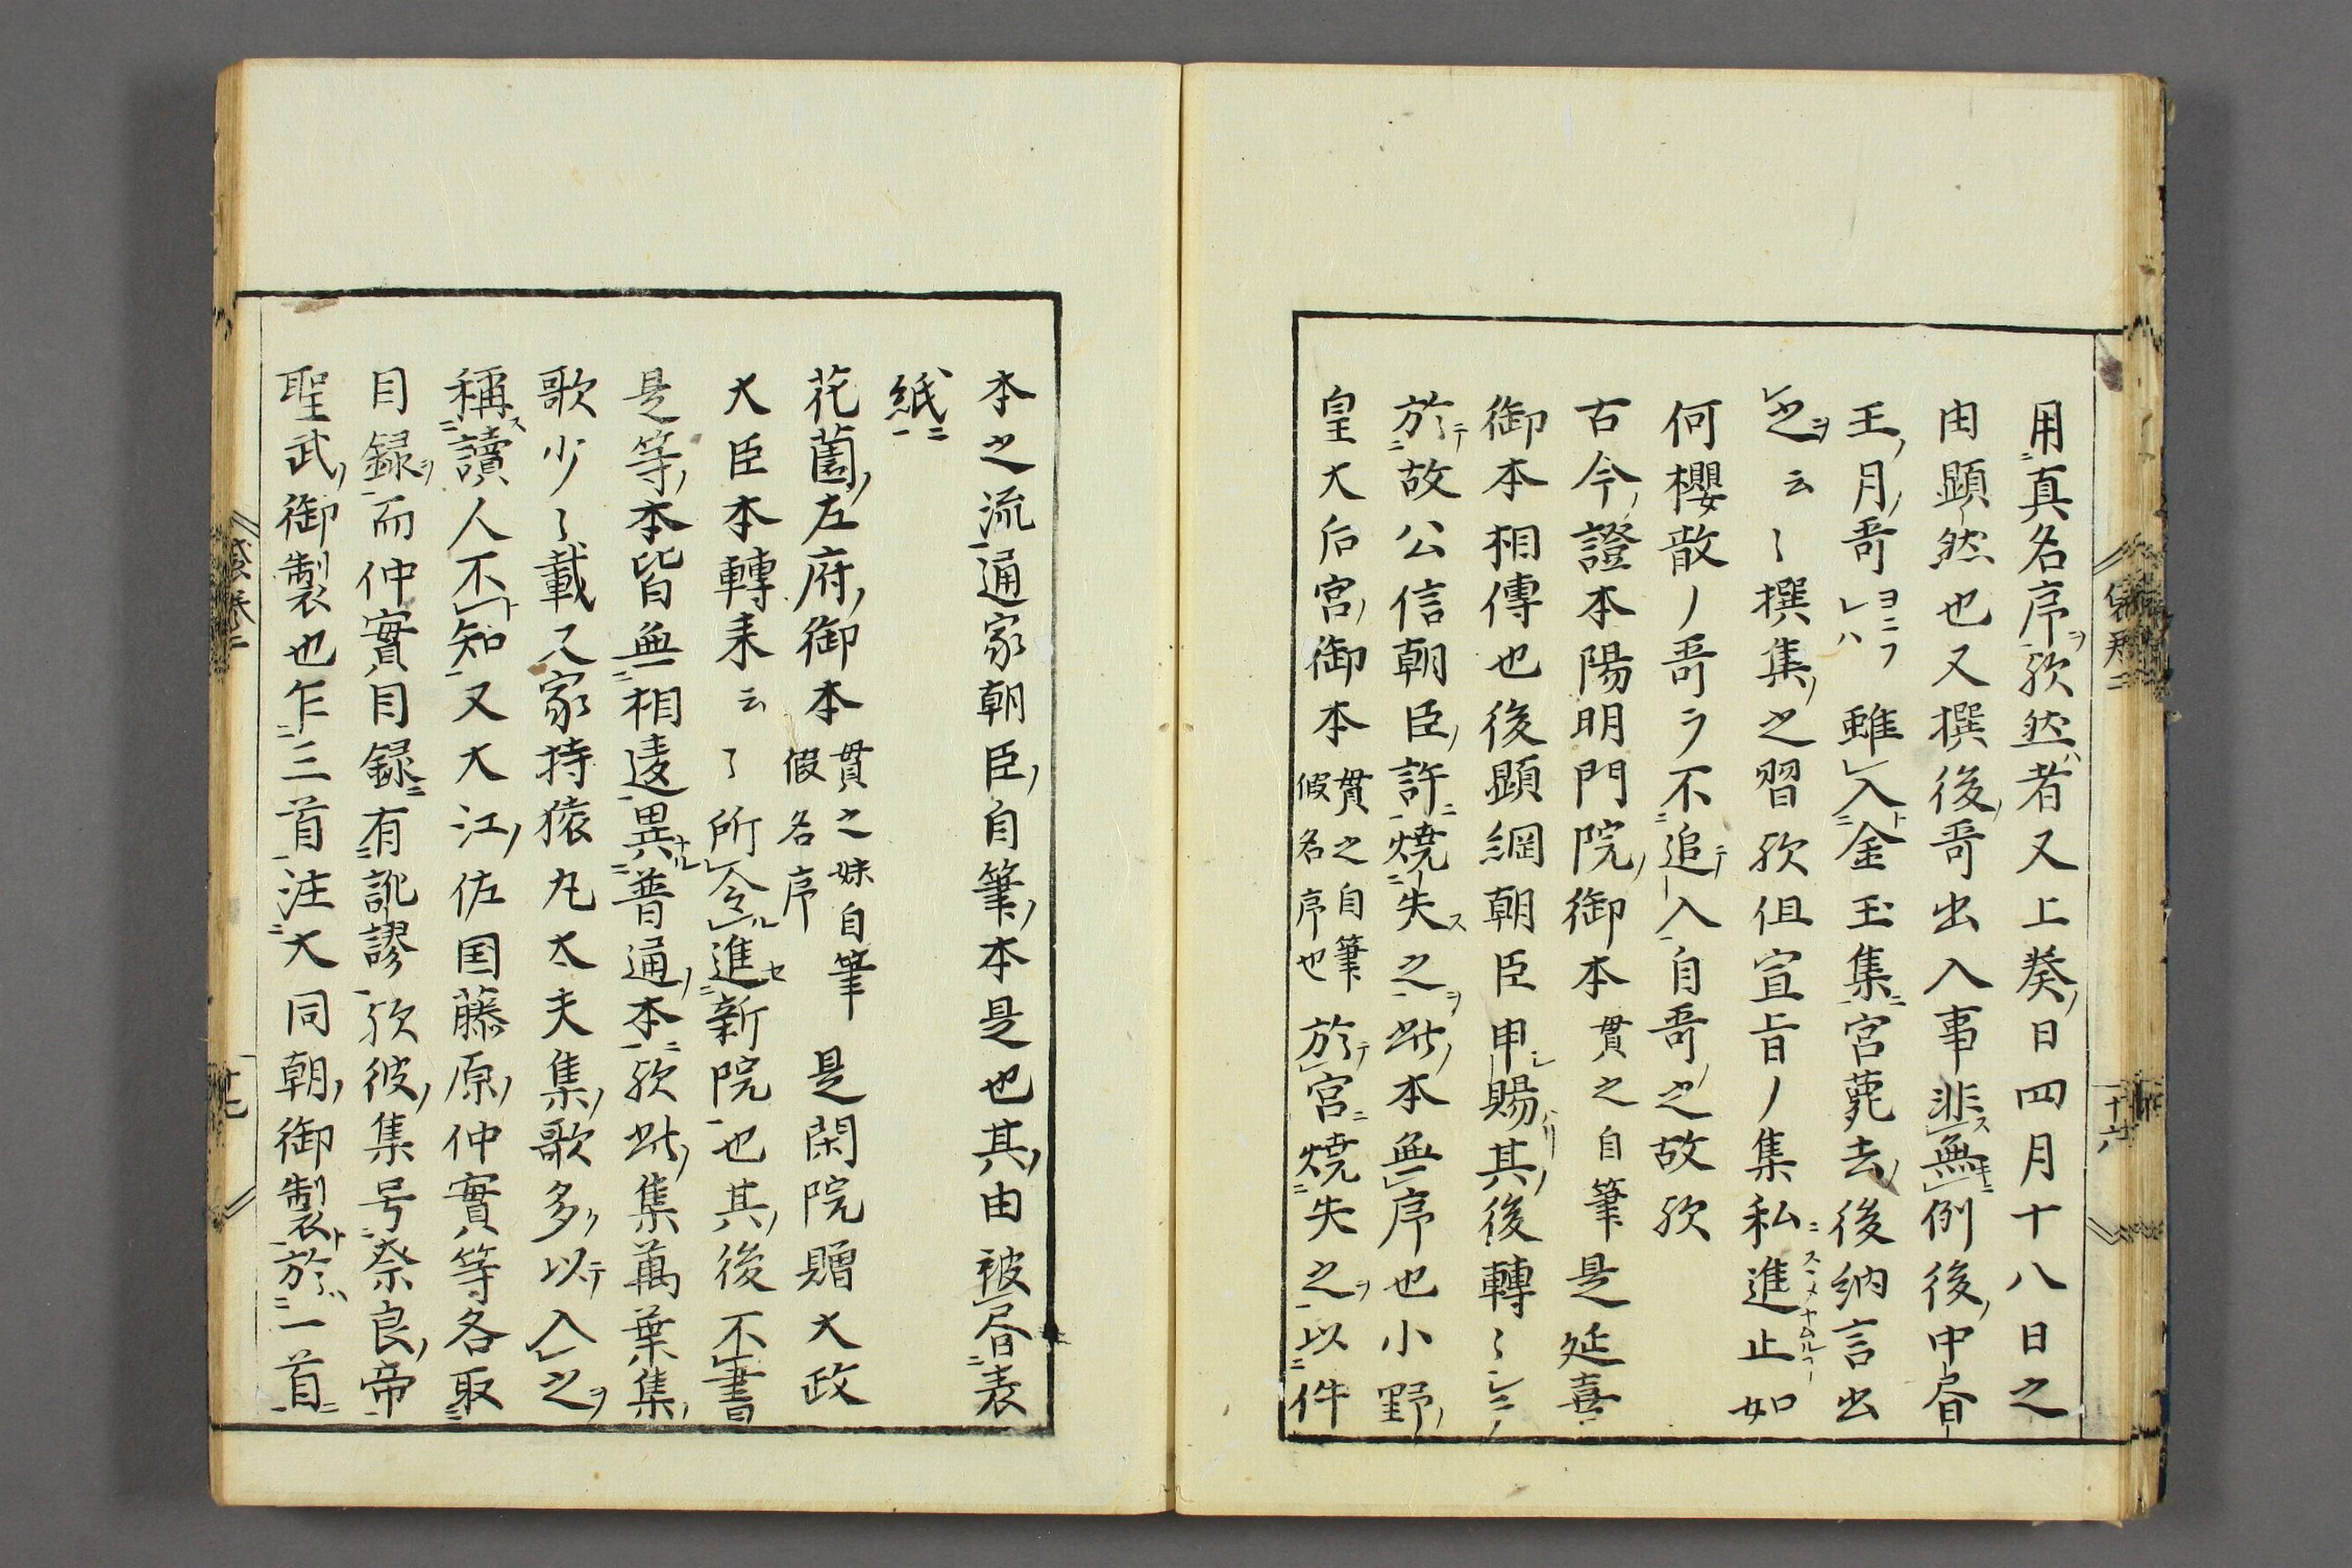 用真名序歟然者又上奏日四月十八日之
由顕然也又撰後哥出入事非無例後中書
王月哥ヨニフレハ雖入金玉集宮薨去後納言出
之云〻撰集之習歟但宣旨ノ集私進止如
何櫻散ノ哥ヲ不追入自哥之故歟
古今證本陽明門院御本貫之自筆是延喜
御本相傳也後顕綱朝臣申賜其後轉〻シテ
於故公信朝臣許焼失之此本無序也小野
皇大后宮御本貫之自筆假名序也於宮焼失之以件
本之流通家朝臣自筆本是也其由被書表
紙
花薗左府御本貫之妹自筆假名序是閑院贈大政
大臣本轉来云〻所令進新院也其後不書
是等本皆無相違異普通本歟此集萬葉集
歌少〻載又家持猿丸大夫集歌多以入之
稱讀人不知又大江佐国藤原仲實等各取
目録而仲實目録有訛謬歟彼集号奈良帝
聖武御製也乍三首注大同朝御製於一首